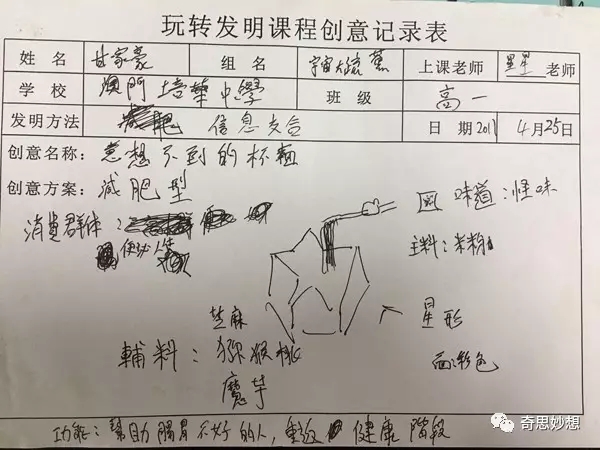 玩转发明课程创意记录表
姓 名 甘家豪 组 名 宇宙大疏菓 上课老师 星星 老师
学 校 澳門培華中學 班 级 高一
发明方法 信息交合 日 期 2017 4月25日
创意名称: 意想不到的杯麵
创意方案: 减肥型
味道:怪味
消費群体:
主料:米粉
星形
面:彩色
芝麻
輔料:猕猴桃
魔芋
功能:幫助腸胃不好的人,重返健康階段
奇思妙想